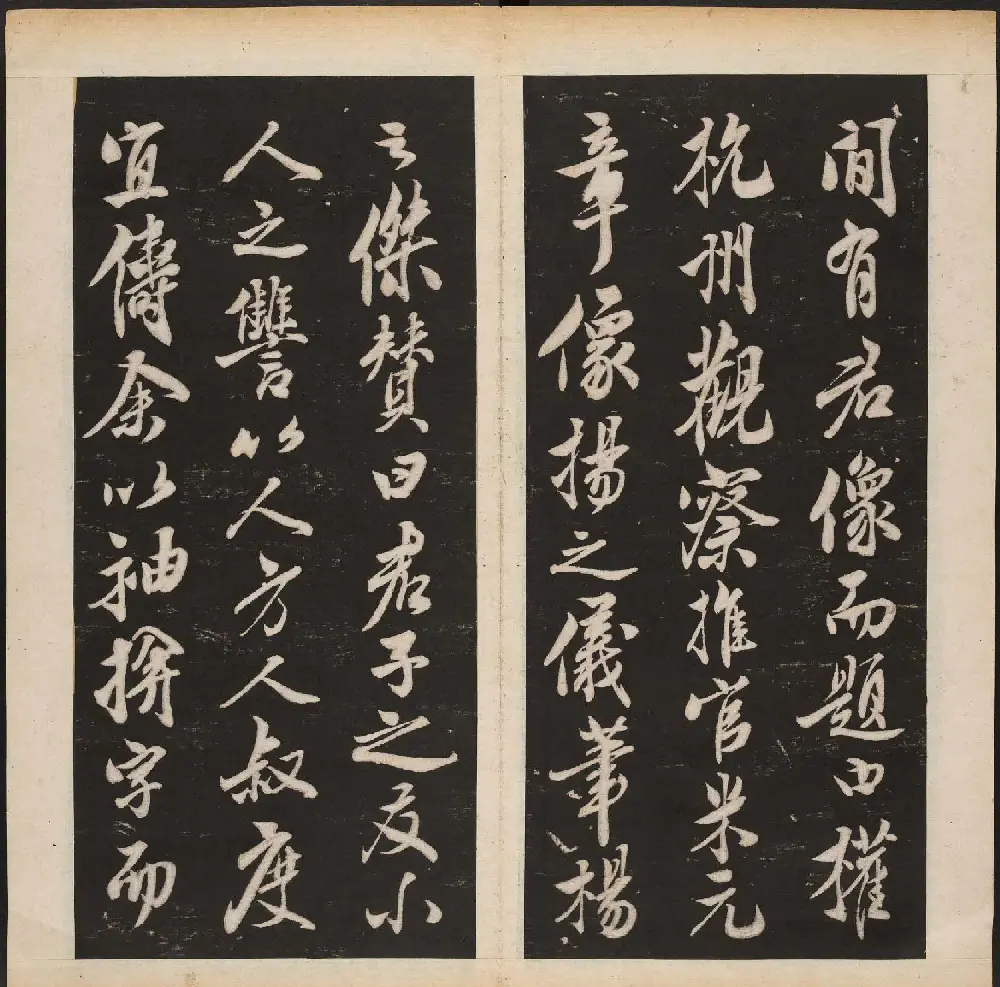 間有君像而題曰權
杭州觀察推官米元
章像楊之儀筆楊
之傑贊曰君子之友小
人之讐以人方人叔度
宜儔余以袖捹字而